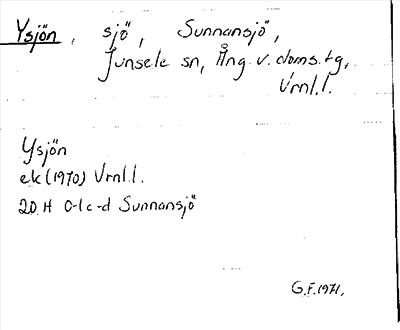 Ysjön, sjö, Sunnansjö,
Junsele sn, Ång. v. doms.tg,
Vrnl.l.
Ysjön
ek (1970) Vrnl.l.
20 H 0-1 c-d Sunnansjö
G.F. 1971.